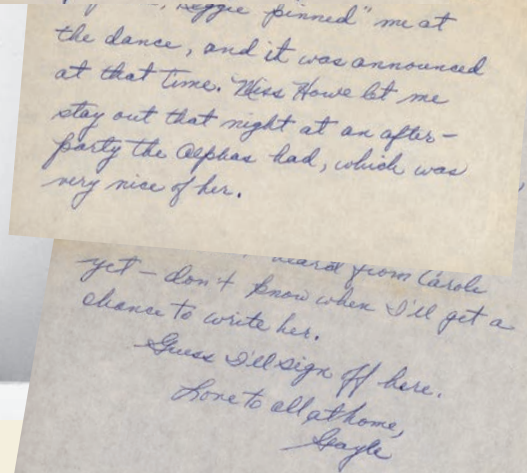 Reggie "pinned" me at
the dance, and it was announced
at that time. Miss Howe let me
stay out that night at an after-
party the Alphas had, which was
very nice of her.
heard from Carole
yet – don't know when I'll get a
chance to write her.
Guess I'll sign off here.
Love to all at home,
Gayle